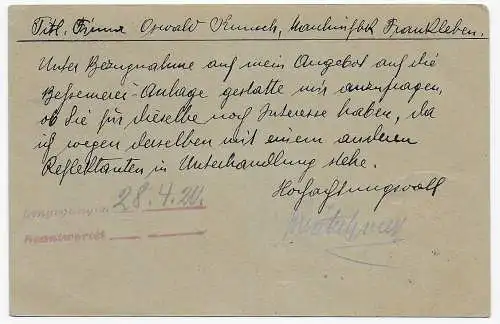 Titl. Firma Oswald Kunsch, Maschinfbk Frankleben.
Unter Bezugnahme auf mein Angebot auf die
Bessemerei-Anlage gestatte mir anzufragen,
ob Sie für dieselbe noch Interesse haben, da
ich wegen derselben mit einem anderen
Reflektanten in Unterhandlung stehe.
Hochachtungsvoll
28.4.20.
Beantwortet